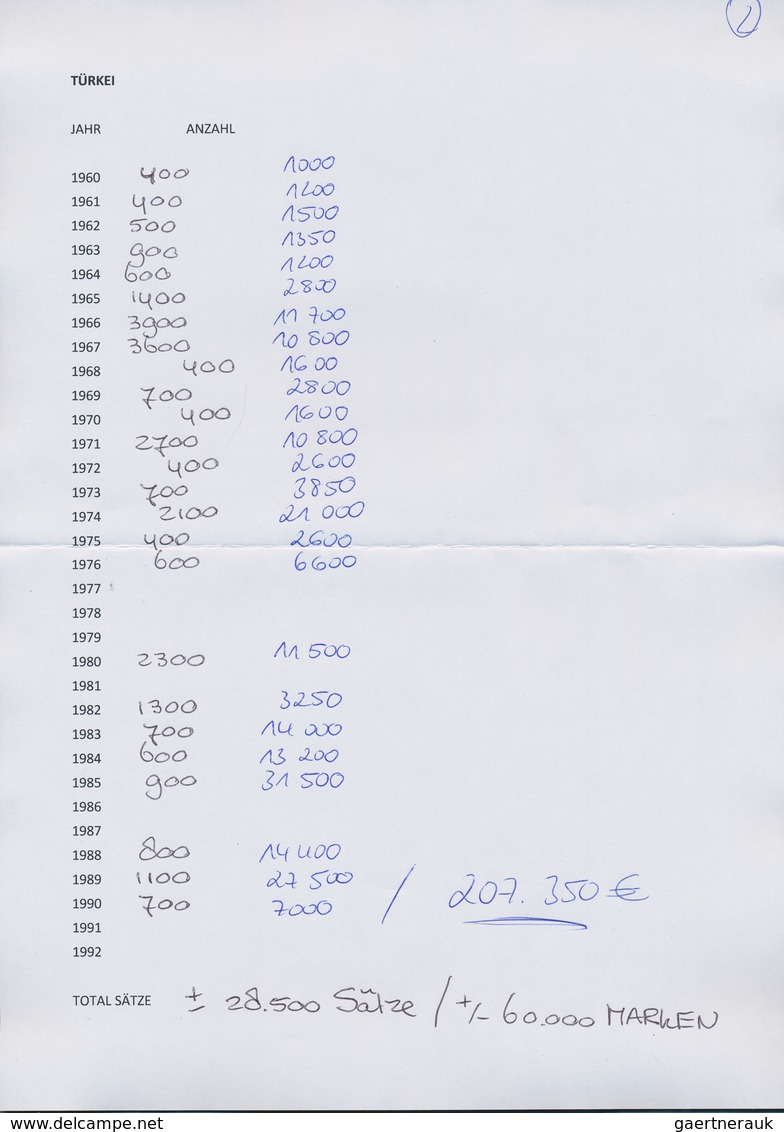 2
TÜRKEI
JAHR ANZAHL
1960 400 1000
1961 400 1200
1962 500 1500
1963 900 1350
1964 600 1200
1965 1400 2800
1966 3900 11 700
1967 3600 10 800
1968 400 1600
1969 700 2800
1970 400 1600
1971 2700 10 800
1972 400 2600
1973 700 3850
1974 2100 21 000
1975 400 2600
1976 600 6600
1977
1978
1979
1980 2300 11 500
1981
1982 1300 3250
1983 700 14 000
1984 600 13 200
1985 900 31 500
1986
1987
1988 800 14 400
1989 1100 27 500
1990 700 7000 / 207.350 €
1991
1992
TOTAL SÄTZE ± 28.500 Sätze / +/- 60.000 MARKEN
www.delcampe.net gaertnerauk